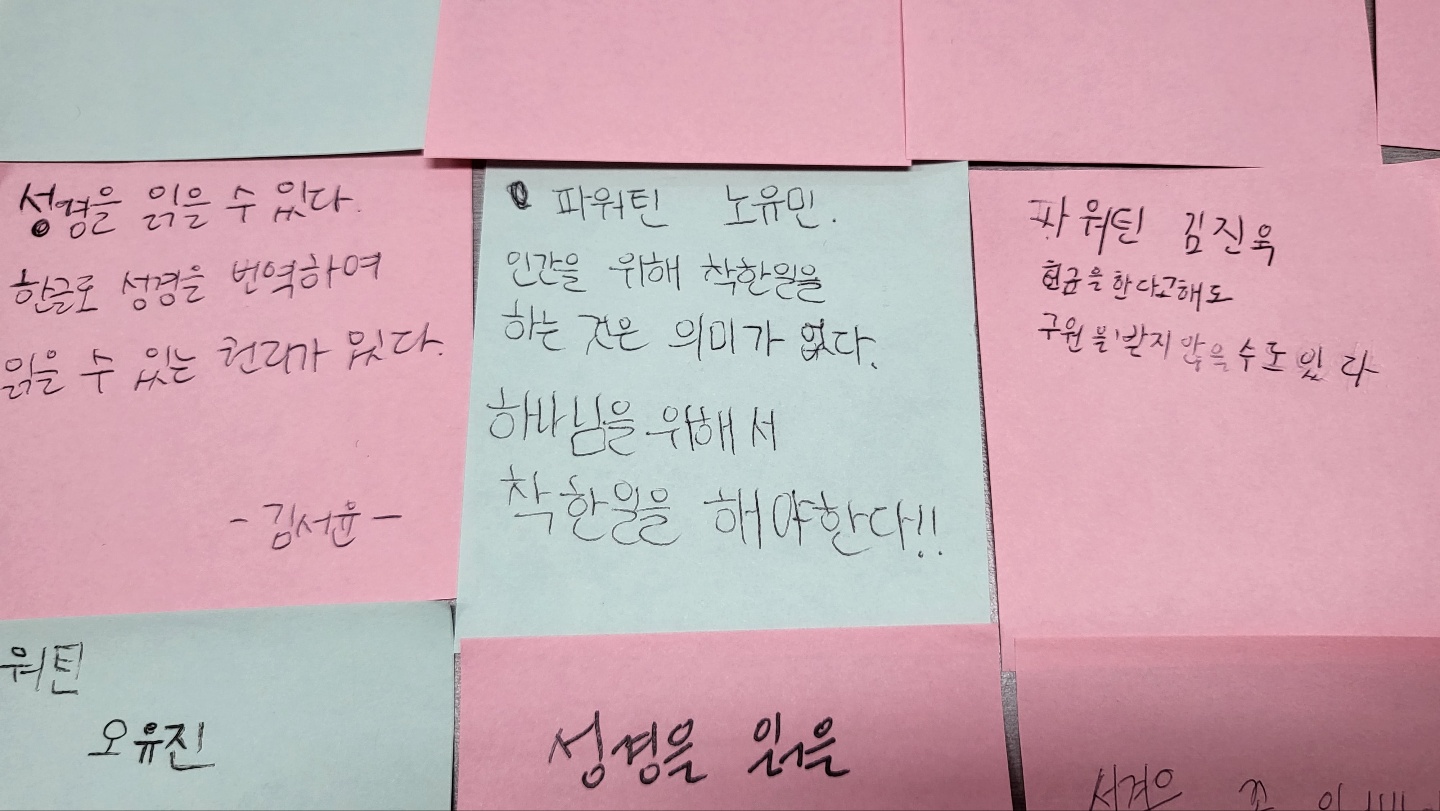 성경을 읽을 수 있다.
한글로 성경을 번역하여
읽을 수 있는 권리가 있다.
-김서윤-
파워틴 노유민.
인간을 위해 착한일을
하는 것은 의미가 없다.
하나님을 위해서
착한일을 해야한다!!
파워틴 김진욱
헌금을 한다고해도
구원을 받지 않을 수도 있다
워틴
오유진
성경을 읽을